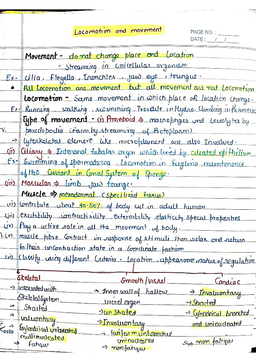 Locomotion and movement
PAGE NO:
DATE: / /
Movement - do not change place and Location
- Streaming in Unicellular organism
Ex - Cilia, Flagella, Tentacles, jaw, eye, tongue.
• All Locomotion are movement but all movement are not Locomotion
Locomotion - Same movement in which place or location change.
Ex - Running, walking, swimming, Tentacle in Hydra, Climbing in Paramecium
Type of movement - (i) Amoeboid → macrophages and Leucocytes by
pseudopodia (form by streaming of protoplasm)
Cytoskeletal element like microfilament are also Involved.
(ii) Ciliary → Internal tubular organ which lined by ciliated epithelium
Ex - Swimming of spermatozoa, Locomotion in Euglena maintenance
of the Current in Canal System of Sponge
(iii) Muscular → limb, jaw tounge
Muscle → mesodermal (specialized tissue)
(i) Contribute about 40-50% of body wt in adult human
(ii) excitibility, contractibility, Extensibility elasticity special properties
Play a active role in all the movement of body.
muscle fibre Contract in response of stimuli then relax and return
to their uncontraction state in a coordinate fashion
Classify using different Criteria - Location, appearance nature of regulation
Skeletal
→ associated with
Skeletal system
→ Striated
→ voluntary
→ Cylindrical unbranched
multinucleated
Fatigue
Smooth/visceral
→ Inner wall of hollow
visceral organ
→ un Striated
→ Involuntary
unbranched
uninucleated
→ nonfatigue
Cardiac
→ Involuntary
→ Striated
→ Cylindrical branched
and uninucleated
non fatigue